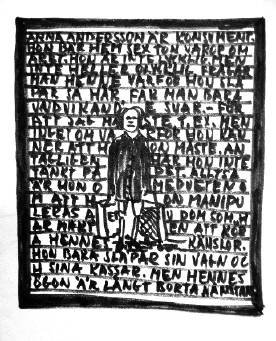 ANNA ANDERSSON ÄR KONSUMENT.
HON BÄR HEM SEX TON VAROR OM
ÅRET. HON ÄR INTE
MAN HENNE VARFÖR HON SLÄ
PAR SÅ HÄR FÅR MAN BARA
SVAR - FÖR
ATT JAG MÅSTE MEN
INGET OM VARFÖR HON KÄN
NER ATT HON MÅSTE. AN
TAGLIGEN HAR HON INTE
TÄNKT PÅ DET. ALLTSÅ
ÄR HON O MEDVETEN O
M ATT HON MANIPU
LERAS A V DOM SOM H
AR MAKT EN ATT RÖR
A HENNES KÄNSLOR.
HON BARA SLÄPAR SIN VÄLN OC
H SINA KASSAR. MEN HENNES
ÖGON ÄR LÅNGT BORTA NÅNSTANS.